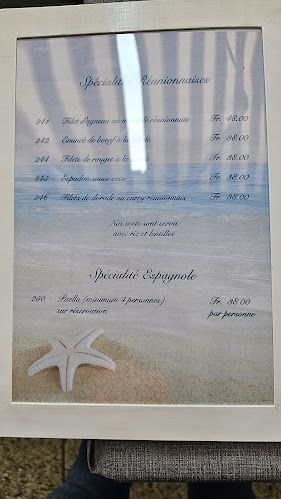 Spécialités Réunionnaises
241 Filet d'agneau au réunionnais Fr. 48.00
242 Emincé de boeuf à la Fr. 38.00
244 Filets de rouget à la Fr. 38.00
245 Espadon sauce coco Fr. 38.00
246 Filets de dorade au curry réunionnais Fr. 38.00
Nos mets sont servis
avec riz et lentilles
Spécialité Espagnole
250 Paella (minimum 4 personnes) Fr. 38.00
sur réservation par personne